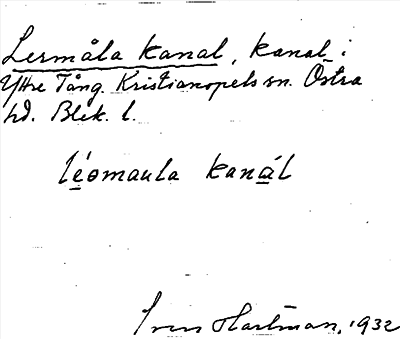 Lermåla kanal, kanal i
Yttre Tång. Kristianopels sn. Östra
hd. Blek. l.
léomaula kanál
Sven Hartman, 1932